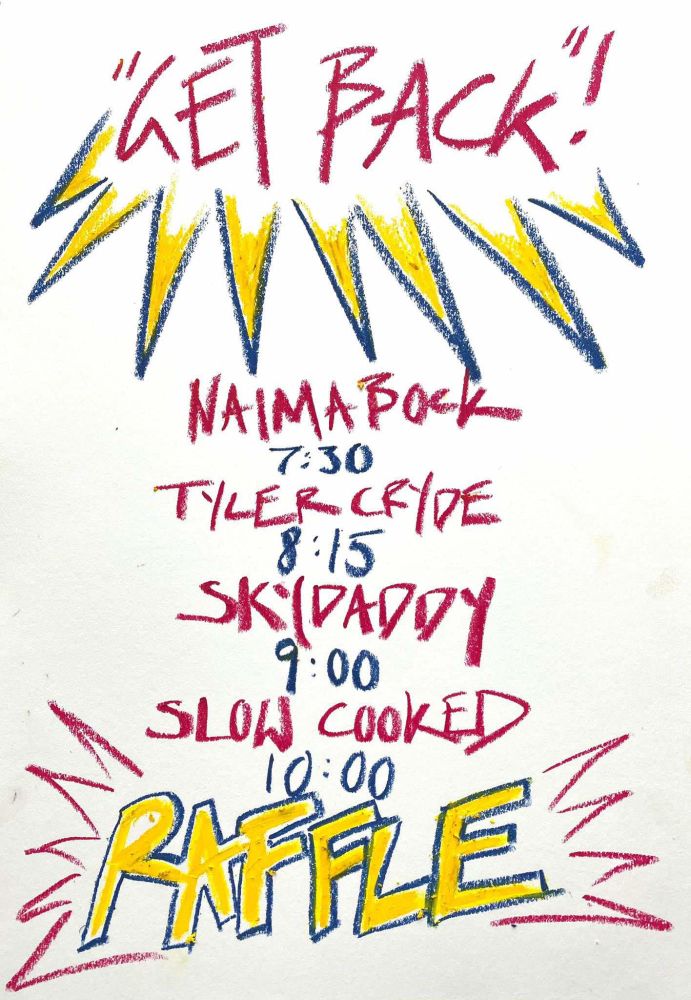 "GET BACK"!
NAIMA BOCK
7:30
TYLER CRYDE
8:15
SKYDADDY
9:00
SLOW COOKED
10:00
RAFFLE